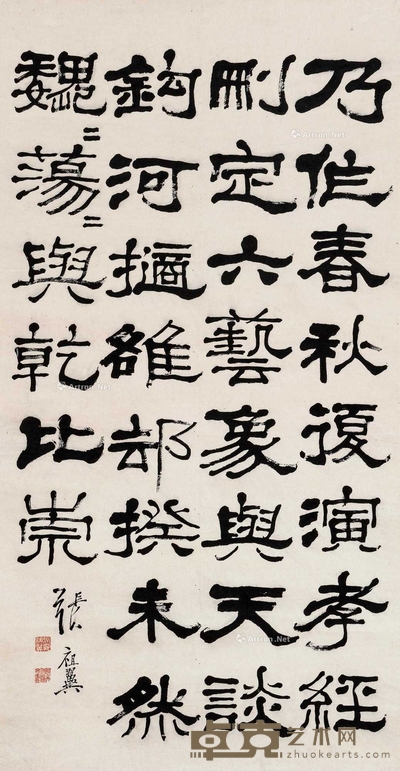 乃作春秋復演孝經
刪定六藝象與天談
鉤河擿雒却揆未然
魏〻蕩〻與乾比崇
張祖翼
Artron.Net
Artron.Net
Artron.Net
Artron.Net
卓克艺术网
zhuokearts.com